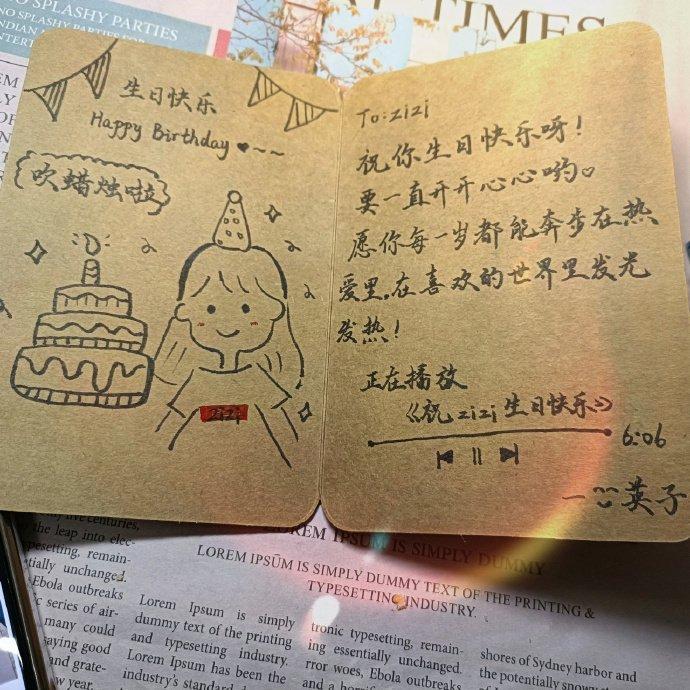 NO SPLASHY PARTIES
NO SPLASHY PARTIES FOR
INDIAN
ENTERT
TIMES
生日快乐
Happy Birthday
吹蜡烛啦
zizi
To:zizi
祝你生日快乐呀!
要一直开开心心哟。
愿你每一岁都能奔步在热
爱里,在喜欢的世界里发光
发热!
正在播放
《祝zizi生日快乐》
6:06
一 英子
LOREM IPSUM IS SIMPLY DUMMY
LOREM IPSŪM IS SIMPLY DUMMY TEXT OF THE PRINTING &
TYPESETTING INDUSTRY.
five centuries,
the leap into elec-
typesetting, remain-
tially unchanged.
Ebola outbreaks
series of air-
many could
saying good
and grate-
w year.
Lorem Ipsum is simply
dummy text of the printing
and typesetting industry.
Lorem Ipsum has been the
industry's standard
tronic typesetting, remain-
ing essentially unchanged.
rror woes, Ebola outbreaks
shores of Sydney harbor and
the potentially